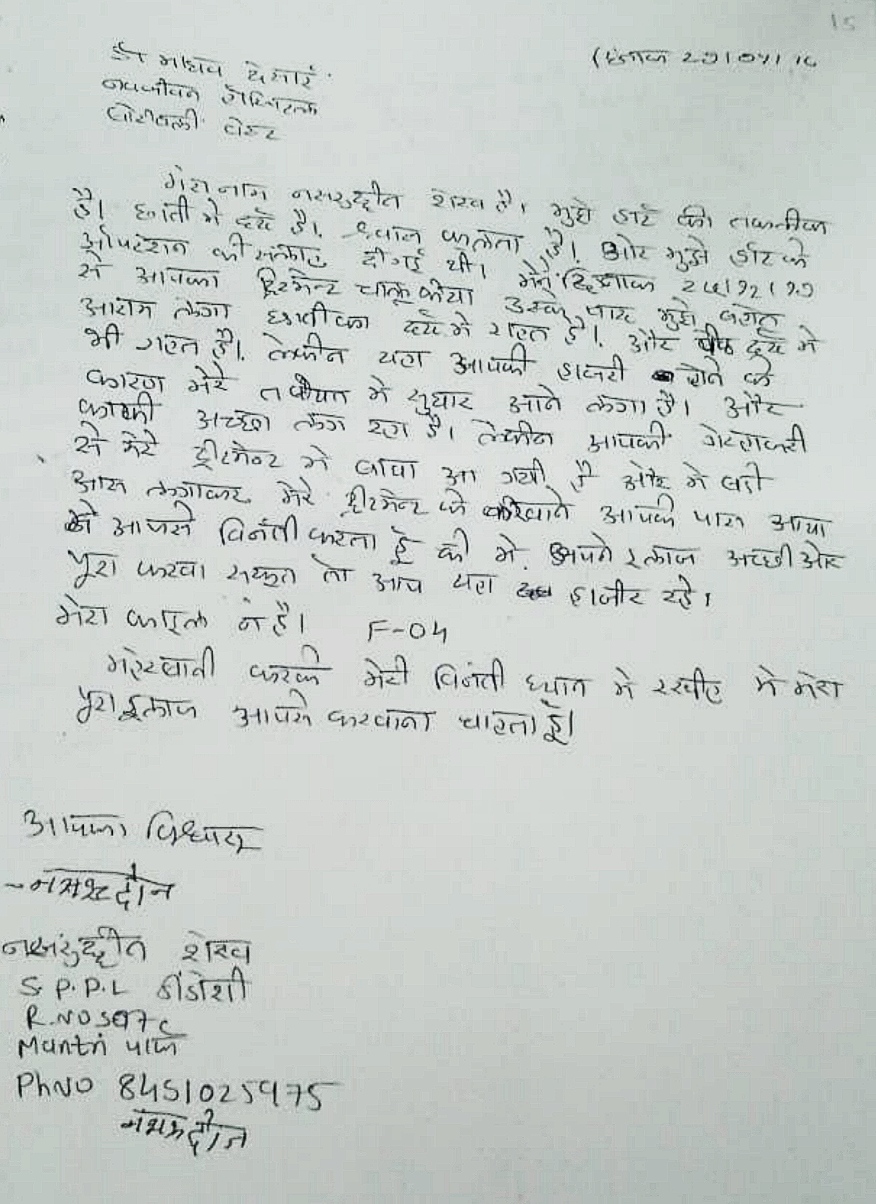 15
डॉ माधव देसाई
दिनांक
नवजीवन हॉस्पिटल
बोरीवली वेस्ट
मेरा नाम नसरुद्दीन शेख है। मुझे हार्ट की तकलीफ
है। छाती मे दर्द है। है। और मुझे हार्ट के
ऑपरेशन की सलाह दी गई थी। मैने दिनाक
से आपका ट्रिटमेन्ट चालू कीया उसके बाद मुझे बहोत
आराम लगा छातीका दर्द मे राहत है। और दर्द मे
भी राहत है। लेकीन यहा आपकी हाजरी होने के
कारण मेरे तबीयत मे सुधार आने लगा है। और
काफी अच्छा लग रहा है। लेकीन आपकी गेरहाजरी
से मेरे ट्रीटमेन्ट मे बाधा आ गयी है और मे बडी
आस लगाकर मेरे ट्रीटमेन्ट को करवाने आपके पास आया
आपसे विनंती करता हूँ की मे अपने इलाज अच्छी और
पूरा करवा सकूत तो आप यहा हाजीर रहे।
मेरा फाईल नं है। F-04
महेरबानी करके मेरी विनंती ध्यान मे रखीए मे मेरा
पूरा ईलाज आपसे करवाना चाहता हूँ।
आपका विश्वासू
नसरुद्दीन शेख
S.P.P.L दींडोशी
R.NO
Mantri पार्क
PhNO 8451025975